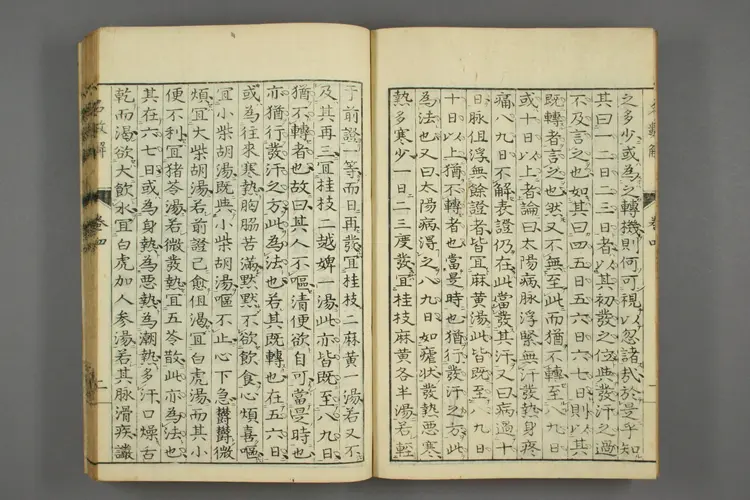 之多少或為之轉機則何可視以忽諸哉於是乎知
其曰一二日二三日者以其初發之位與發汗之過
不及言之也如其曰四五日五六日六七日則以其
既轉者言之也然又不無至此而猶不轉者也八九日
或十日以上者論曰太陽病脉浮緊無汗發熱身疼
痛八九日不解表證仍在此當發其汗又曰病過十
日脉但浮無餘證者皆宜麻黃湯此皆既至八九日
十日以上猶不轉者也當是時也猶行發汗之方此
為法也又曰太陽病得之八九日如瘧狀發熱惡寒
熱多寒少一日二三度發宜桂枝麻黃各半湯若輕
于前證一等而日再發宜桂枝二麻黃一湯若又不
及其再三宜桂枝二越婢一湯此亦皆既至八九日
猶不轉者也故曰其人不嘔清便欲自可當是時也
亦猶行發汗之方此為法也若其既轉也在五六日
或為往來寒熱胸脇苦滿默默不欲飲食心煩喜嘔
宜小柴胡湯既與小柴胡湯嘔不止心下急鬱鬱微
煩宜大柴胡湯若前證已愈但渴宜白虎湯而其小
便不利宜猪苓湯若微發熱宜五苓散此亦為法也
其在六七日或為身熱為惡熱為潮熱多汗口燥舌
乾而渴欲大飲水宜白虎加人參湯若其脉滑疾譫
名數解
卷四
一
名數解
卷四
二